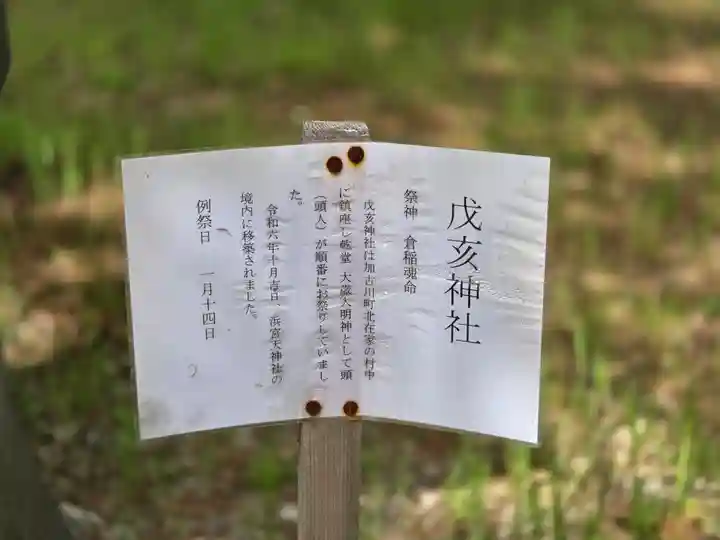 戊亥神社
祭神　倉稲魂命
戊亥神社は加古川町北在家の村中
に鎮座し乾堂 大歳大明神として頭
（頭人）が順番にお祭りしていまし
た。
令和六年十月吉日、浜宮天神社の
境内に移築されました。
例祭日　一月十四日